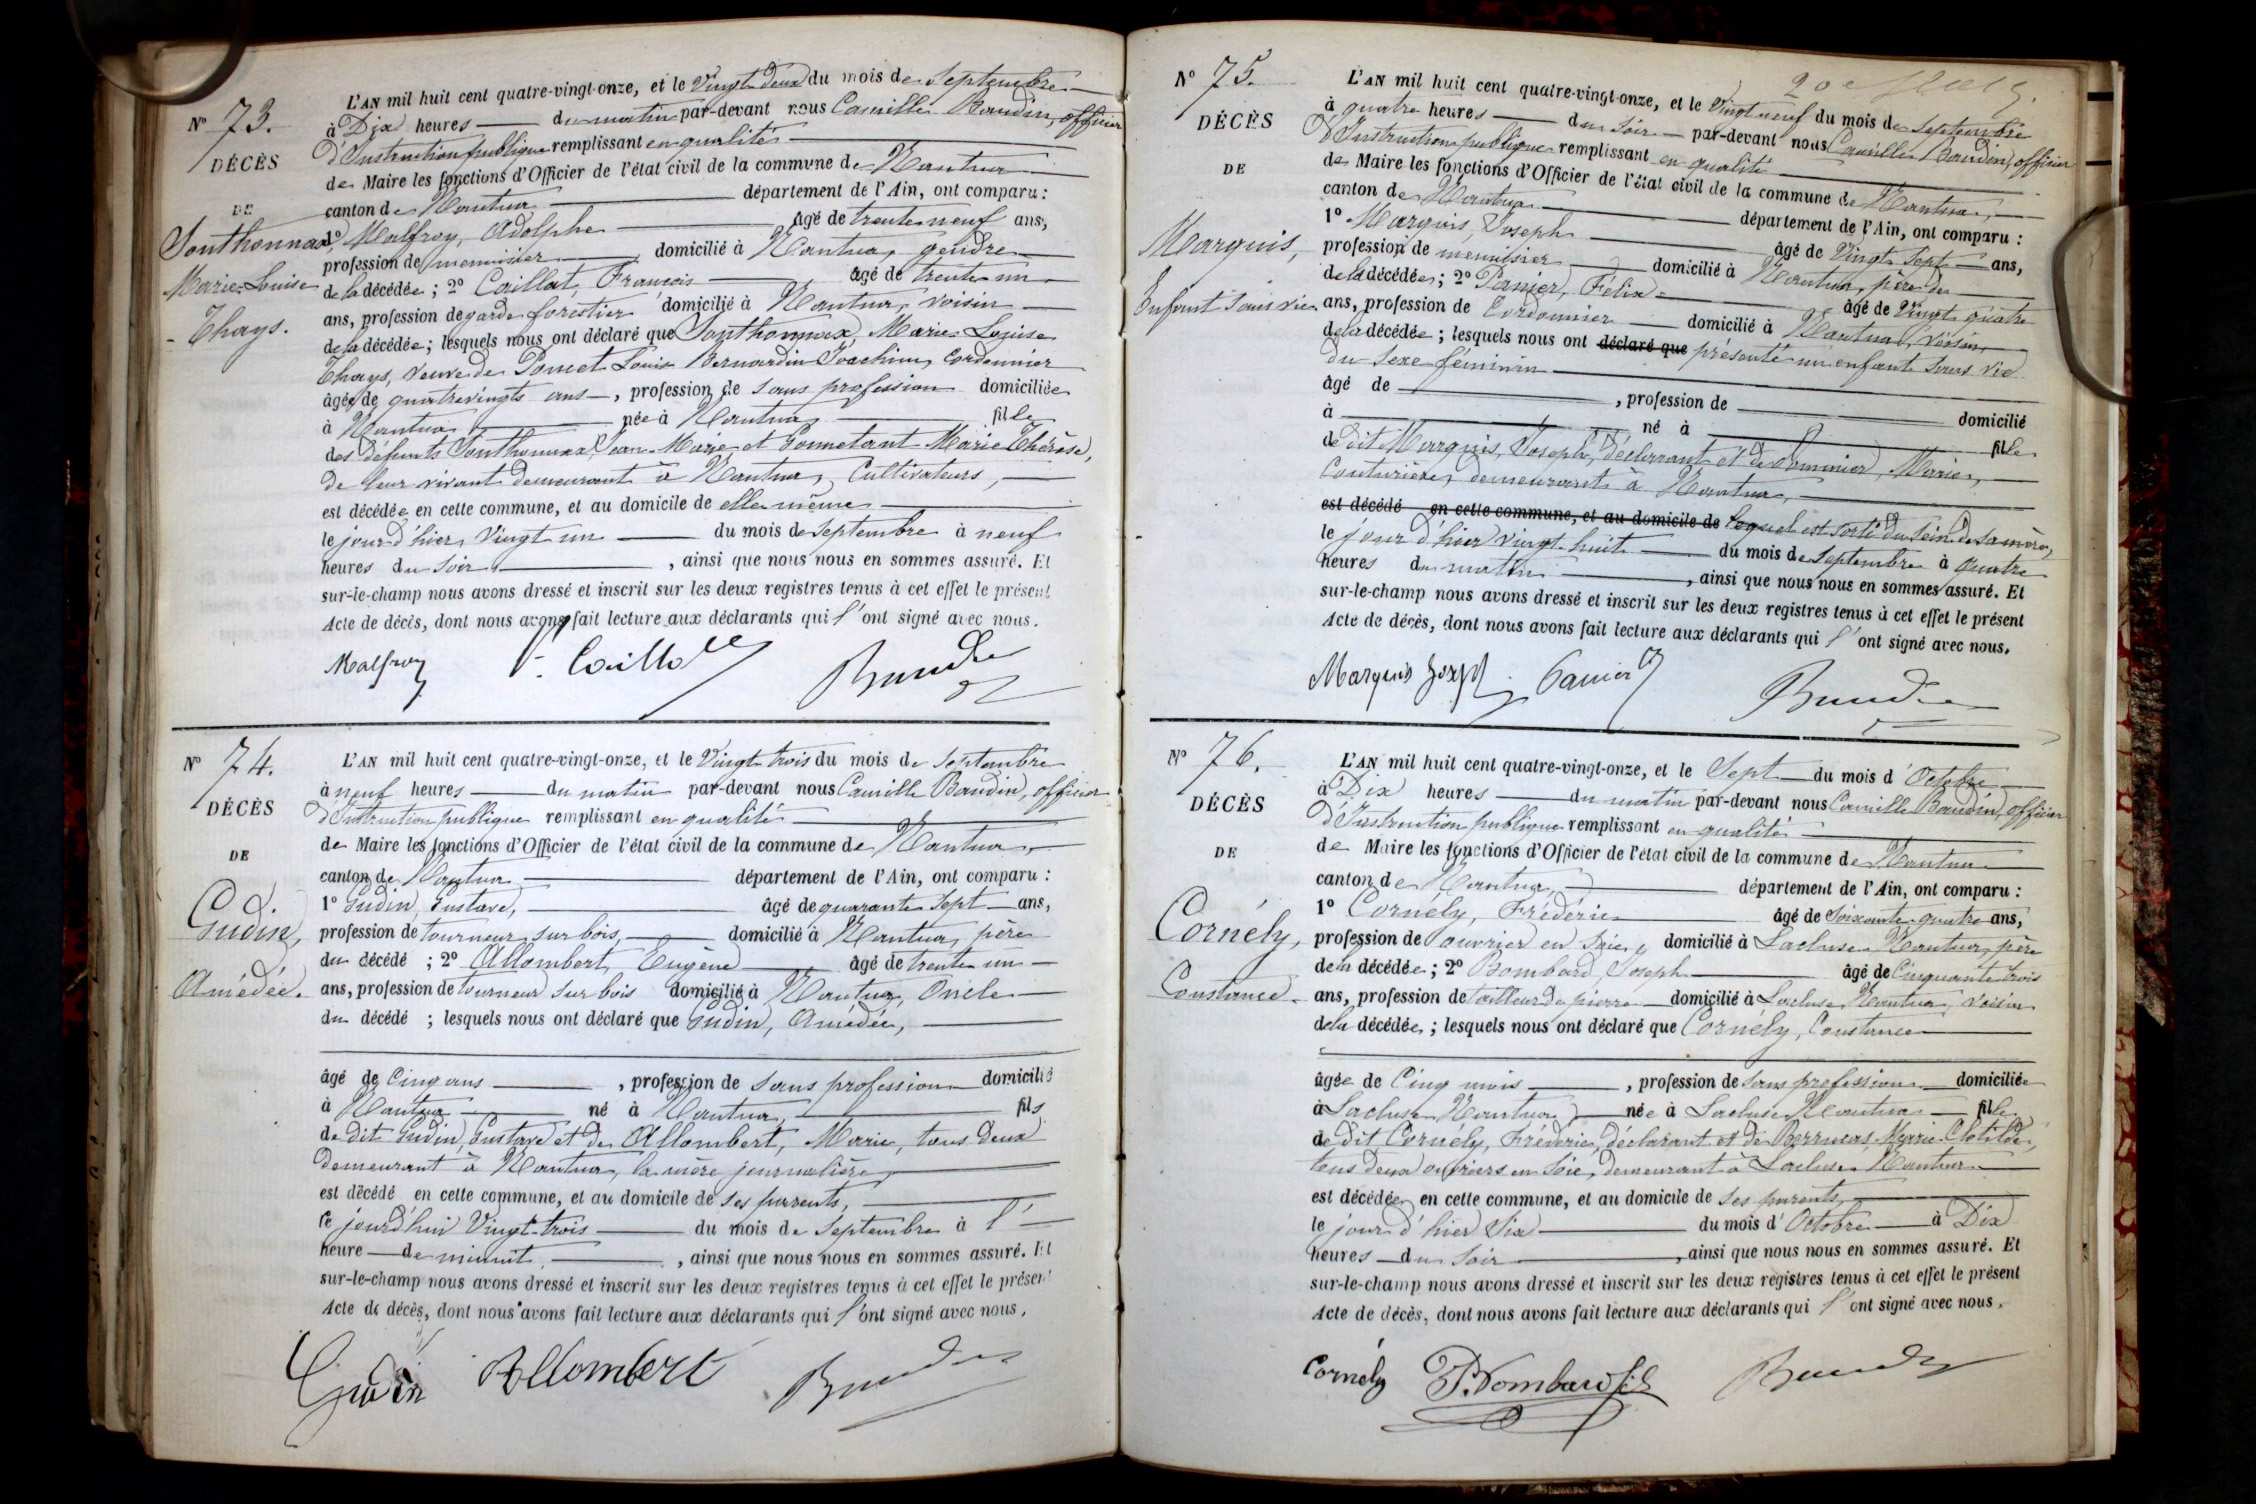 Nº 73.
DÉCÈS
DE
Southonnax,
Marie-Louise
Thays.
L'AN mil huit cent quatre-vingt-onze, et le Vingt deux du mois de Septembre
à Dix heures du matin par-devant nous Camille Baudin, officier
d'Instruction publique remplissant en qualité
de Maire les fonctions d'Officier de l'état civil de la commune de Nantua
canton de Nantua département de l'Ain, ont comparu :
1º Malfroy, Adolphe âgé de trente neuf ans,
profession de menuisier domicilié à Nantua, gendre
de la décédée ; 2º Caillat, François âgé de trente un
ans, profession de garde forestier domicilié à Nantua, voisin
de la décédée ; lesquels nous ont déclaré que Southonnax, Marie Louise
Thays, veuve de Poncet Louis Bernardin Joachim, Cordonnier
âgée de quatrevingts ans, profession de sans profession domiciliée
à Nantua née à Nantua fille
des défunts Southonnax, Jean-Marie et Marie Thérèse,
de leur vivant demeurant à Nantua, Cultivateurs,
est décédée en cette commune, et au domicile de elle même
le jour d'hier Vingt un du mois de Septembre à neuf
heures du soir, ainsi que nous nous en sommes assuré. Et
sur-le-champ nous avons dressé et inscrit sur les deux registres tenus à cet effet le présent
Acte de décès, dont nous avons fait lecture aux déclarants qui l'ont signé avec nous.
Malfroy Caillat Baudin
Nº 74.
DÉCÈS
DE
Gudin,
Amédée.
L'AN mil huit cent quatre-vingt-onze, et le Vingt trois du mois de Septembre
à neuf heures du matin par-devant nous Camille Baudin, officier
d'Instruction publique remplissant en qualité
de Maire les fonctions d'Officier de l'état civil de la commune de Nantua,
canton de Nantua département de l'Ain, ont comparu :
1º Gudin, Gustave, âgé de quarante sept ans,
profession de tourneur sur bois, domicilié à Nantua, père
du décédé ; 2º Allombert, Eugène âgé de trente un
ans, profession de tourneur sur bois domicilié à Nantua, Oncle
du décédé ; lesquels nous ont déclaré que Gudin, Amédée,
âgé de Cinq ans, profession de sans profession domicilié
à Nantua né à Nantua, fils
de dit Gudin, Gustave et de Allombert, Marie, tous deux
demeurant à Nantua, la mère journalière,
est décédé en cette commune, et au domicile de ses parents,
ce jourd'hui Vingt-trois du mois de Septembre à l'
heure de minuit, ainsi que nous nous en sommes assuré. Et
sur-le-champ nous avons dressé et inscrit sur les deux registres tenus à cet effet le présent
Acte de décès, dont nous avons fait lecture aux déclarants qui l'ont signé avec nous.
Gudin Allombert Baudin
Nº 75.
DÉCÈS
DE
Marquis,
Enfant sans vie
L'AN mil huit cent quatre-vingt-onze, et le Vingt neuf du mois de Septembre
à quatre heures du soir par-devant nous Camille Baudin, officier
d'Instruction publique remplissant en qualité
de Maire les fonctions d'Officier de l'état civil de la commune de Nantua,
canton de Nantua département de l'Ain, ont comparu :
1º Marquis, Joseph âgé de Vingt Sept ans,
profession de menuisier domicilié à Nantua, père de
de la décédée ; 2º Panier, Félix âgé de Vingt quatre
ans, profession de Cordonnier domicilié à Nantua, voisin
de la décédée ; lesquels nous ont déclaré que présenté un enfant sans vie
du sexe féminin
âgé de , profession de domicilié
à né à fille
de dit Marquis, Joseph, déclarant et de Marie,
Couturière, demeurant à Nantua,
est décédé en cette commune, et au domicile de lequel est sorti du sein de sa mère,
le jour d'hier vingt-huit du mois de Septembre à quatre
heures du matin, ainsi que nous nous en sommes assuré. Et
sur-le-champ nous avons dressé et inscrit sur les deux registres tenus à cet effet le présent
Acte de décès, dont nous avons fait lecture aux déclarants qui l'ont signé avec nous.
Marquis Joseph Panier Baudin
Nº 76.
DÉCÈS
DE
Cornély,
Constance.
L'AN mil huit cent quatre-vingt-onze, et le Sept du mois d'Octobre
à Dix heures du matin par-devant nous Camille Baudin, officier
d'Instruction publique remplissant en qualité
de Maire les fonctions d'Officier de l'état civil de la commune de Nantua
canton de Nantua, département de l'Ain, ont comparu :
1º Cornély, Frédéric âgé de Soixante-quatre ans,
profession de ouvrier en soie, domicilié à Lacluse Nantua, père
de la décédée ; 2º Bombard, Joseph âgé de Cinquante trois
ans, profession de tailleur de pierre domicilié à Lacluse Nantua, voisin
de la décédée ; lesquels nous ont déclaré que Cornély, Constance
âgée de Cinq mois, profession de sans profession domiciliée
à Lacluse Nantua, née à Lacluse Nantua fille
de dit Cornély, Frédéric, déclarant et de Marie-Clotilde,
tous deux ouvriers en soie, demeurant à Lacluse Nantua
est décédée en cette commune, et au domicile de ses parents,
le jour d'hier Six du mois d'Octobre à Dix
heures du soir, ainsi que nous nous en sommes assuré. Et
sur-le-champ nous avons dressé et inscrit sur les deux registres tenus à cet effet le présent
Acte de décès, dont nous avons fait lecture aux déclarants qui l'ont signé avec nous.
Cornély Bombard Baudin